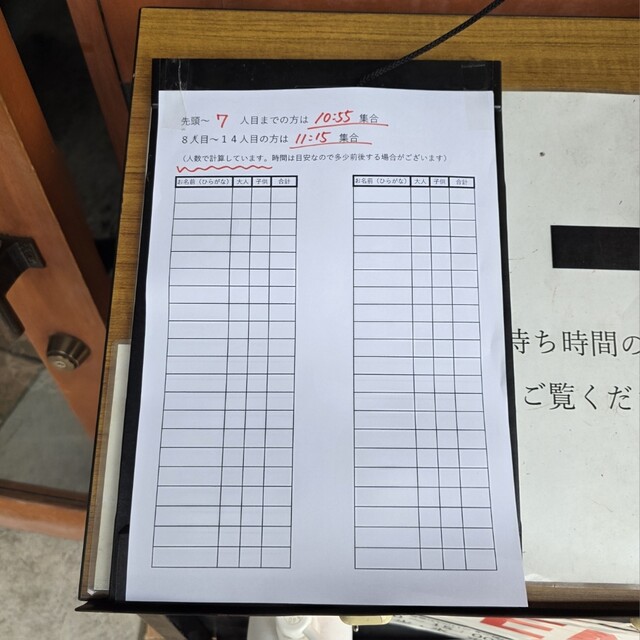 先頭～７ 人目までの方は 10:55 集合
８人目～１４人目の方は 11:15 集合
（人数で計算しています。時間は目安なので多少前後する場合がございます）
お名前（ひらがな） 大人 子供 合計
お名前（ひらがな） 大人 子供 合計
待ち時間の
ご覧くだ